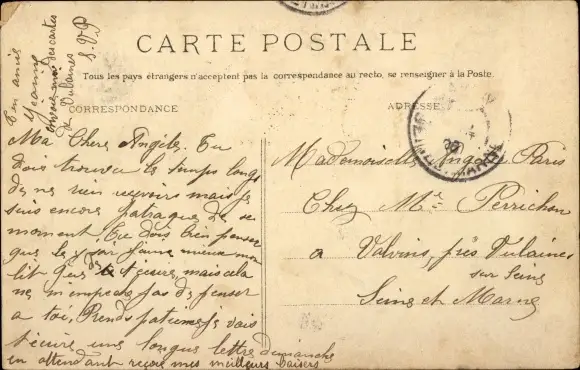 CARTE POSTALE
Tous les pays étrangers n'acceptent pas la correspondance au recto, se renseigner à la Poste.
CORRESPONDANCE
ADRESSE
Ma Chere Angèle. Tu
dois trouver le temps long
de ne rien recevoir mais je
suis encore patraque de ce
moment. Tu dois bien penser
que le soir j'aime mieux mon
lit que de t'ecrire, mais cela
ne m'empeche pas de penser
a toi, Prends patience je vais
t'ecrire une longue lettre dimanche
en attendant reçois mes meilleurs baisers
Ton amie
Jeanne
envoie-moi des cartes
de Vulaines
S.V.P
Mademoiselle Paris
Chez Mme Perrichon
a Valvins, près Vulaines
sur Seine
Seine et Marne